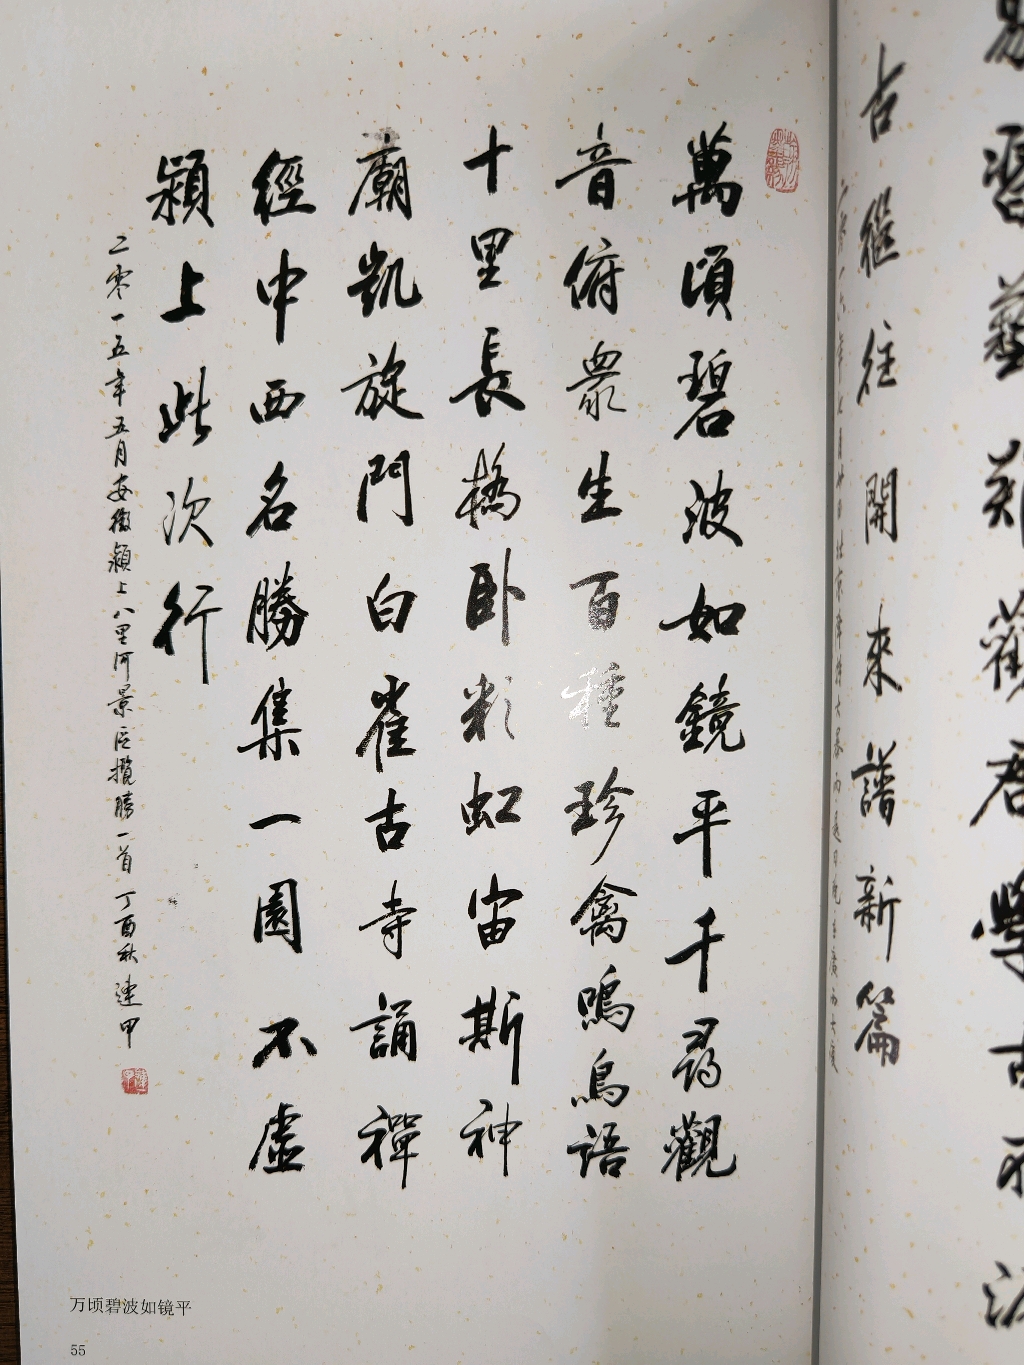 習藝觀君學古不
古繼往開來譜新篇
萬頃碧波如鏡平千尋觀
音俯衆生百種珍禽鳴鳥語
十里長橋卧彩虹宙斯神
廟凱旋門白雀古寺誦禪
經中西名勝集一園不虛
潁上此次行
二零一五年五月安徽潁上八里河景区攬勝一首丁酉秋建甲
万顷碧波如镜平
55